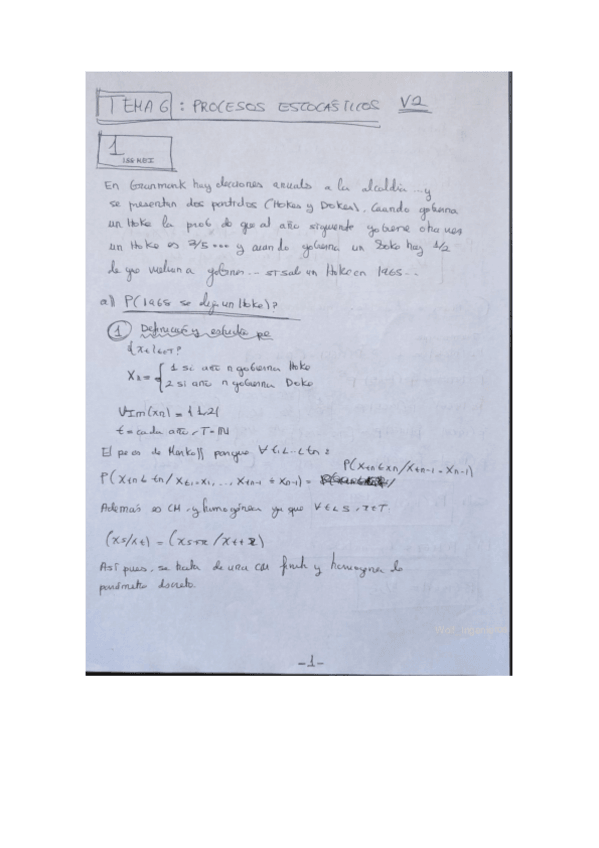 TEMA 6 : PROCESOS ESTOCÁSTICOS V2
1
En Granmonk hay elecciones anuales a la alcaldía ... y
se presentan dos partidos (Hokes y Dokes). Cuando gobierna
un Hoke la prob de que al año siguiente gobierne otra vez
un Hoke es 3/5 ... y cuando gobierna un Doke hay 1/2
de que vuelvan a gobernar ... si sal un Hoke en 1965 ..
a)) P(1968 se elija un Hoke)?
1 Definición y estudio pe
{xt}t∈T?
Xt = { 1 si año n gobierna Hoke
2 si año n gobierna Doke
VIm(xn) = {1,2}
t = cada año, T = IN
El pecos de Markoff porque ∀ t1 < ... < tn :
P(xtn ≤ xn/xtn-1 = xn-1)
P(xtn ≤ tn / xt1 = x1, ..., xtn-1 = xn-1) =
Además es CM y homogénea ya que ∀ t < s, z ∈ T
(xs/xt) = (xs+z / xt+z)
Así pues, se trata de una CM finita y homogénea de
parámetro discreto.
-1-